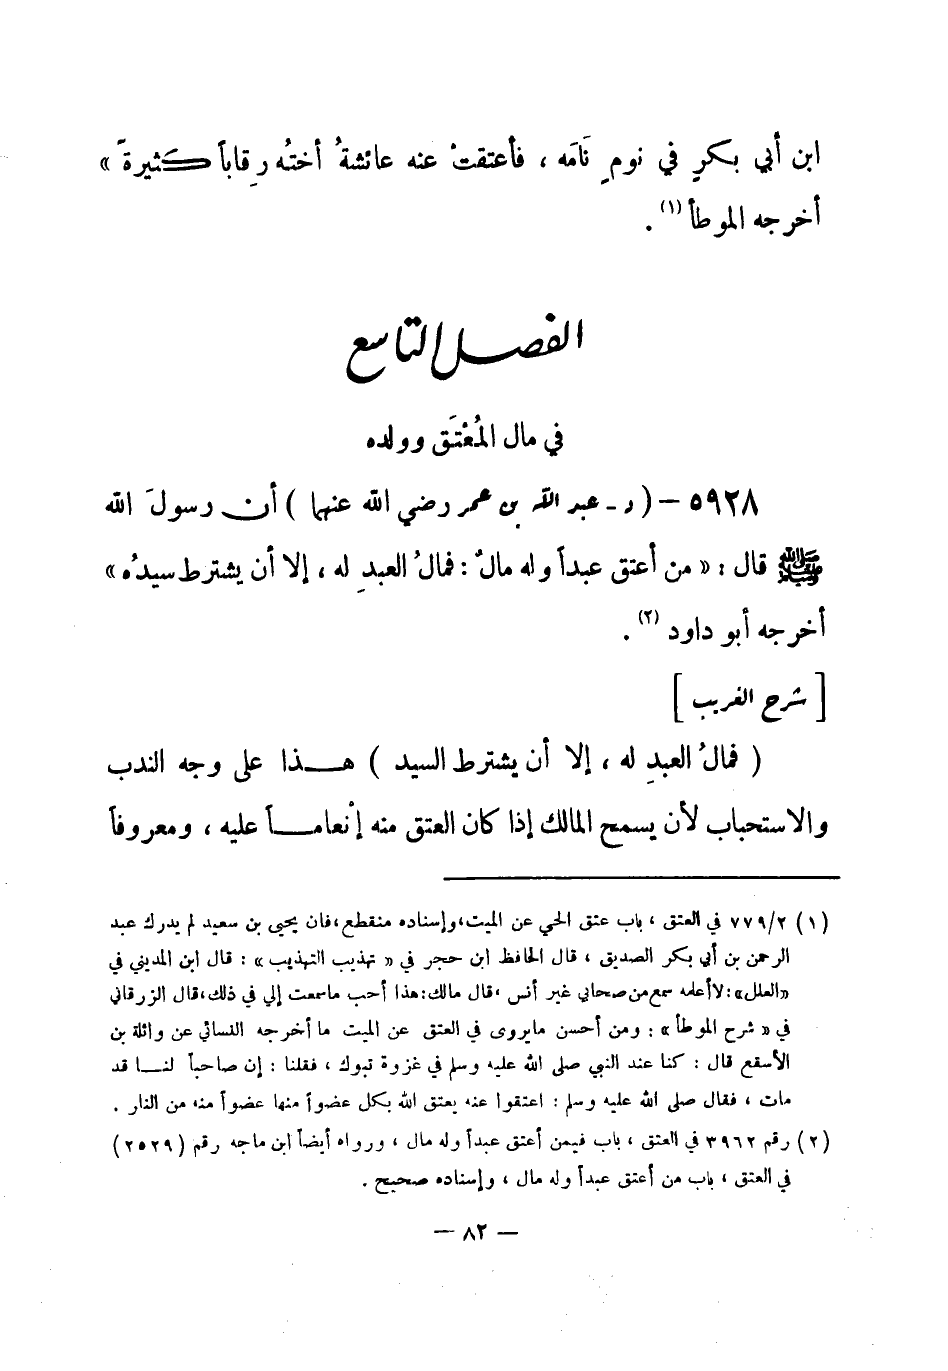 ابن أبي بكرٍ في نومٍ نَامَه ، فأعتقتْ عنه عائشةُ أختُه رِقاباً كثيرةً »
أخرجه الموطأ (١) .
الفصل التاسع
في مال المُعْتَق وولده
٥٩٢٨ – ( د - عبد الله بن عمر رضي الله عنهما ) أن رسولَ الله
ﷺ قال : « من أعتق عبداً وله مالٌ : فمالُ العبدِ له ، إلا أن يشترط سيدُه »
أخرجه أبو داود (٢) .
[ شرح الغريب ]
( فمالُ العبدِ له ، إلا أن يشترط السيد ) هذا على وجه الندب
والاستحباب لأن يسمح المالك إذا كان العتق منه إنْعاماً عليه ، ومعروفاً
(١) ٧٧٩/٢ في العتق ، باب عتق الحي عن الميت، وإسناده منقطع، فان يحيى بن سعيد لم يدرك عبد
الرحمن بن أبي بكر الصديق ، قال الحافظ ابن حجر في « تهذيب التهذيب » : قال ابن المديني في
«العلل»: لاأعلمه سمع من صحابي غير أنس ، قال مالك: هذا أحب ماسمعت إلي في ذلك، قال الزرقاني
في « شرح الموطأ » : ومن أحسن مايروى في العتق عن الميت ما أخرجه النسائي عن واثلة بن
الأسقع قال : كنا عند النبي صلى الله عليه وسلم في غزوة تبوك ، فقلنا : إن صاحباً لنا قد
مات ، فقال صلى الله عليه وسلم : اعتقوا عنه يعتق الله بكل عضواً منها عضواً منه من النار .
(٢) رقم ٣٩٦٢ في العتق ، باب فيمن أعتق عبداً وله مال ، ورواه أيضاً ابن ماجه رقم (٢٥٢٩)
في العتق ، باب من أعتق عبداً وله مال ، وإسناده صحيح .
– ٨٢ –